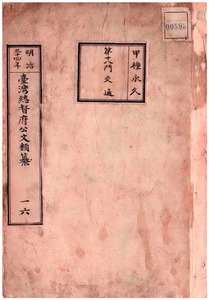 甲種永久
第十八門交通
明治
三十四年
臺灣總督府公文類纂
一六